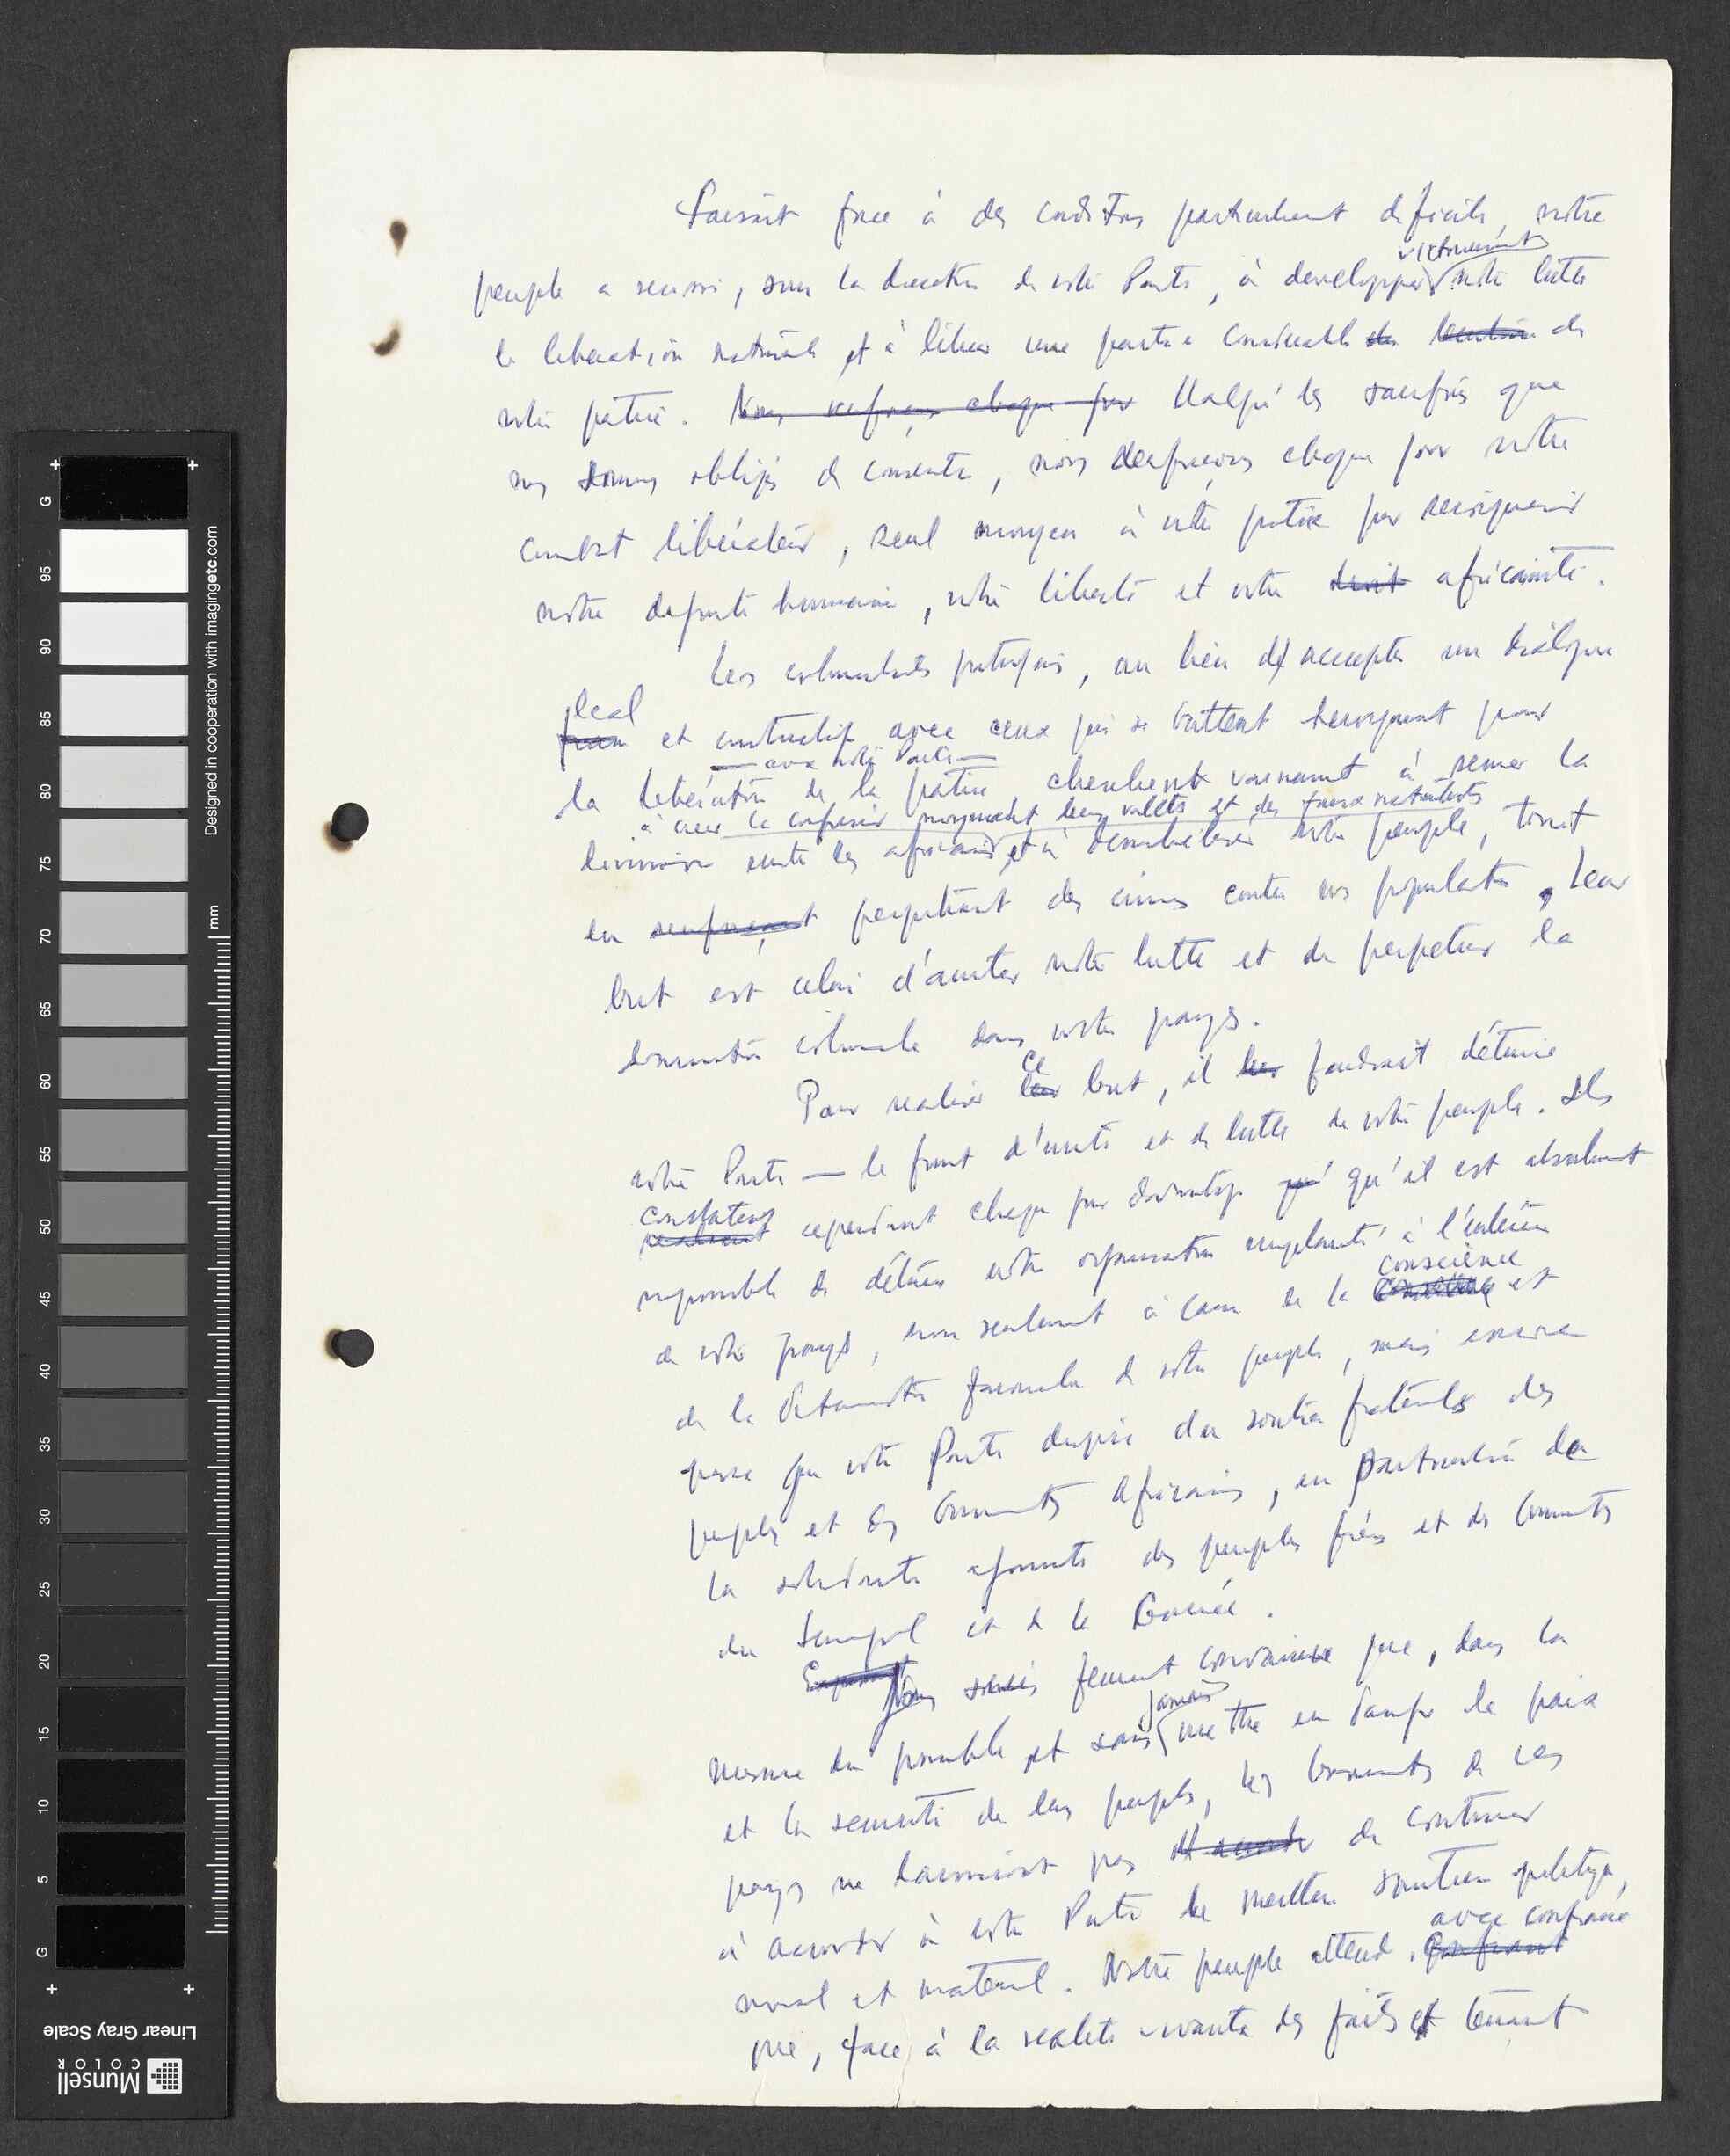 Faisant face à des conditions particulièrement difficiles, notre
victorieusement
peuple a réussi, sous la direction de notre Parti, à developper notre lutte
de liberation nationale et à libérer une partie considerable de
notre patrie. Nous renforçons chaque jour Malgré les sacrifices que
nous sommes obligés de consentir, nous renforçons chaque jour notre
combat libérateur, seul moyen à notre portée pour reconquérir
notre dignité humaine, notre liberté et notre droit africanité.
Les colonialistes portugais, au lieu d'accepter un dialogue
leal
franc et constructif avec ceux qui se battent heroiquement pour
— avec notre Parti —
la libération de la patrie, cherchent vainement à semer la
à créer la confusion moyennant leurs valets et des faux nationalistes
division entre les africains et à démobiliser notre peuple, tout
en renforçant perpétrant des crimes contre nos populations. Leur
but est celui d'arrêter notre lutte et de perpétuer la
domination coloniale dans notre pays.
ce
Pour realiser leur but, il leur faudrait détruire
notre Parti — le front d'unité et de lutte de notre peuple. Ils
constatent
realisent cependant chaque jour davantage qu'il est absolument
impossible de détruire notre organisation implantée à l'intérieur
conscience
de notre pays, non seulement à cause de la et
de la determination farouche de notre peuple, mais encore
parce que notre Parti dispose du soutien fraternel des
peuples et des Gouvernements africains, en particulier de
la solidarité agissante des peuples frères et des Gouvernements
du Senegal et de la Guinée.
Nous sommes fermement convaincus que, dans la
jamais
mesure du possible et sans mettre en danger la paix
et la securité de leurs peuples, les Gouvernements de ces
pays ne laisseront pas de continuer
à accorder à notre Parti le meilleur soutien politique,
avec confiance
moral et materiel. Notre peuple attend
que, face à la realité vivante des faits et tenant